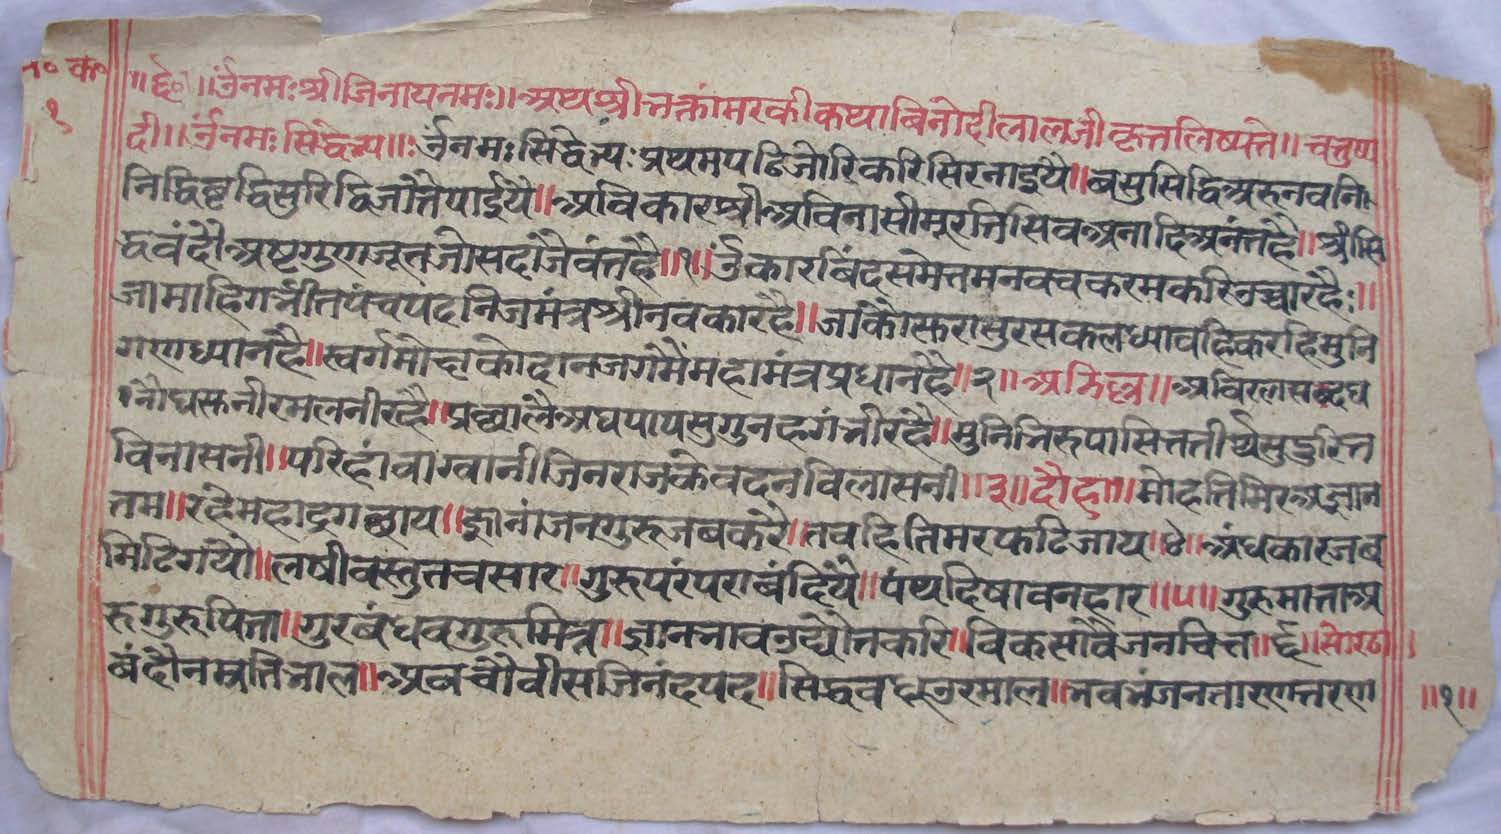 भ० क०
१
॥ ६० ॥ ॐनमः श्रीजिनायनमः ॥ अथ श्रीभक्तांमरकीकथाबिनोदीलालजीकृतलिष्यते ॥ चतुष्प
दी ॥ ॐनमः सिद्धेभ्य ॥ ः ॐनमः सिद्धेभ्यः प्रथमपढिजोरिकरिसिरनाइयै ॥ बसुसिद्धिअरुनवनि
निद्धिबृद्धिसुरिद्धिजांतैपाईयै ॥ अविकारश्रीअविनासीमूरतिसिवअनादिअनंतहै ॥ श्रीसि
द्धवंदौअष्टगुणजूतजोसदांजैवंतहै ॥१॥ ॐकारबिंदसमेतमनवचकरमकरिउच्चारहै ः ॥
जामाहिगर्भीतपंचपदनिजमंत्रश्रीनवकारहै ॥ जाकौंसफरासुरसकलध्यावहिकरहिमुनि
गणध्यानहै ॥ स्वर्गमोक्षकोदानजगमैंमहामंत्रप्रधानहै ॥२॥ अडिल्ल ॥ अविरलसब्दघ
नौघसफनीरमलनीरहै ॥ प्रछालैअघपापसुगुनहगंभीरहै ॥ मुनिनिरुपासिततीर्थसुदुरित
विनासनी ॥ परिहांवाग्वानीजिनराजकेवदनविलासनी ॥३॥ दौहा ॥ मोहतिमिरअज्ञान
तम ॥ रहेमहाद्रगछाय ॥ ज्ञानांजनगुरुजबकरै ॥ तवहितिमरफटिजाय ॥४॥ अंधकारजब
मिटिगयौ ॥ लषीवस्तुतचसार ॥ गुरुपरंपराबंदियै ॥ पंथदिषावनहार ॥५॥ गुरुमाताअ
रुगुरुपिता ॥ गुरबंधवगुरुमित्र ॥ ज्ञानभावउद्योतकरि ॥ विकसावैजनचित्त ॥६॥ सोरठा ।
बंदौनम्रतिभाल ॥ अबचौवीसजिनंदपद ॥ सिद्धवधूउरमाल ॥ भवभंजनतारणतरण
॥१॥